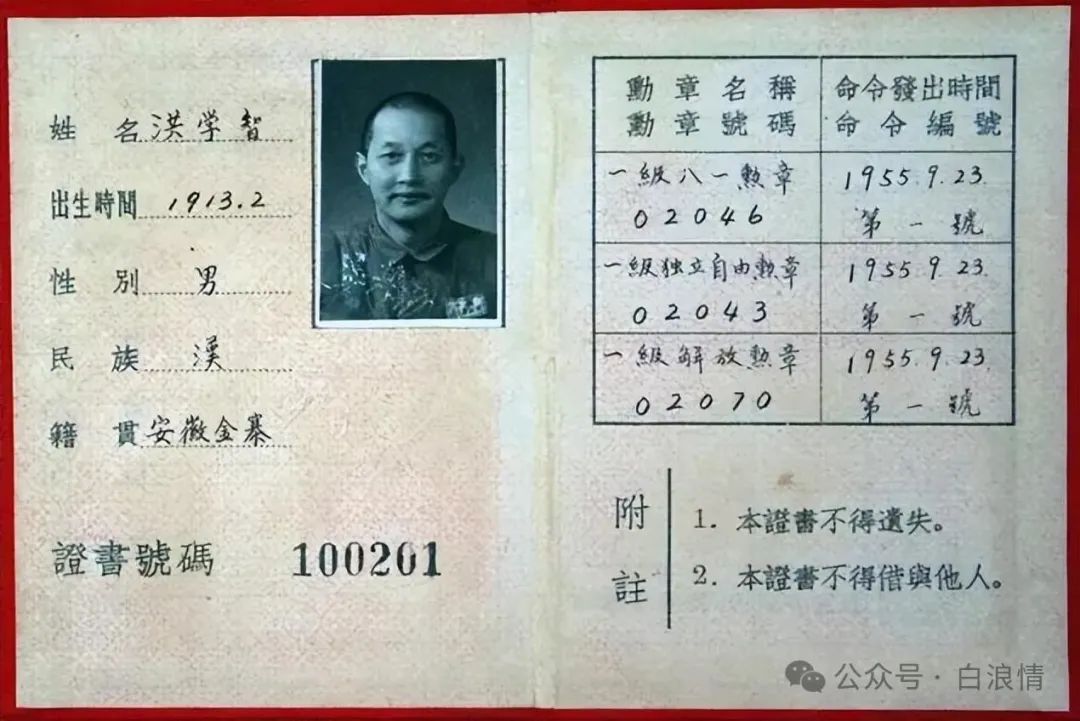 姓 名 洪学智
出生時間 1913.2
性 別 男
民 族 漢
籍 貫 安徽金寨
證書號碼 100201
勳章名稱 命令發出時間
勳章號碼 命令編號
一級八一勲章 1955.9.23.
02046 第一號
一級独立自由勲章 1955.9.23.
02043 第一號
一級解放勲章 1955.9.23.
02070 第一號
附註
1. 本證書不得遺失。
2. 本證書不得借與他人。
公众号 · 白浪情